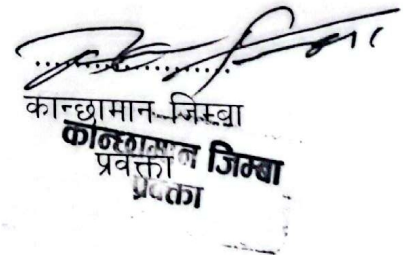 कान्छामान जिम्बा
कान्छामान जिम्बा
प्रवक्ता
प्रवक्ता